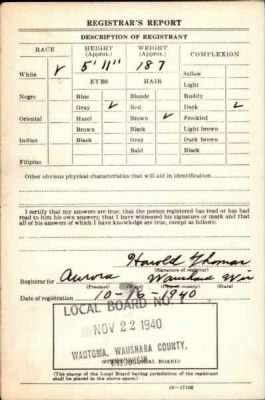 REGISTRAR'S REPORT
DESCRIPTION OF REGISTRANT
RACE HEIGHT (Approx.) WEIGHT (Approx.) COMPLEXION
White ✓ 5' 11" 187 Sallow
EYES HAIR Light
Negro Blue Blonde Ruddy
Gray ✓ Red Dark ✓
Oriental Hazel Brown ✓ Freckled
Brown Black Light brown
Indian Black Gray Dark brown
Bald Black
Filipino
Other obvious physical characteristics that will aid in identification
I certify that my answers are true; that the person registered has read or has had
read to him his own answers; that I have witnessed his signature or mark and that
all of his answers of which I have knowledge are true, except as follows:
Harold Thomas
(Signature of registrar)
Registrar for Aurora Waushara Wis
(Precinct)
Date of registration 10-16 1940
LOCAL BOARD NO.
NOV 22 1940
WAUTOMA, WAUSHARA COUNTY,
WISCONSIN
(STAMP OF LOCAL BOARD)
(The stamp of the Local Board having jurisdiction of the registrant
shall be placed in the above space.)